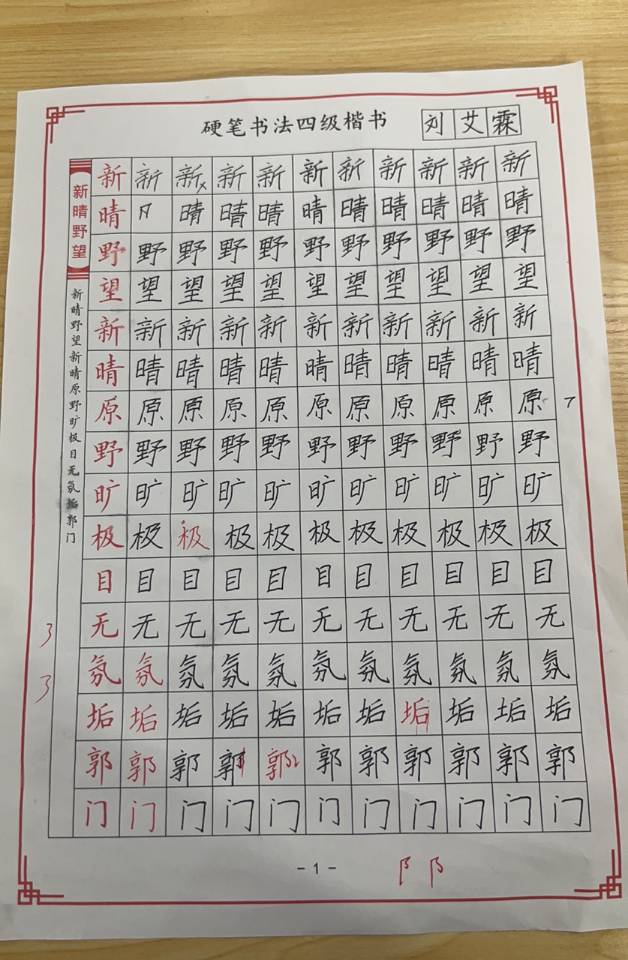 硬笔书法四级楷书
刘艾霖
新晴野望
新晴野望新晴原野旷极目无氛垢郭门
新新新新新新新新新新新
晴晴晴晴晴晴晴晴晴晴
野野野野野野野野野野野
望望望望望望望望望望望
新新新新新新新新新新新
晴晴晴晴晴晴晴晴晴晴晴
原原原原原原原原原原原
野野野野野野野野野野野
旷旷旷旷旷旷旷旷旷旷旷
极极极极极极极极极极极
目目目目目目目目目目目
无无无无无无无无无无无
氛氛氛氛氛氛氛氛氛氛氛
垢垢垢垢垢垢垢垢垢垢垢
郭郭郭郭郭郭郭郭郭郭郭
门门门门门门门门门门门
- 1 -
阝阝